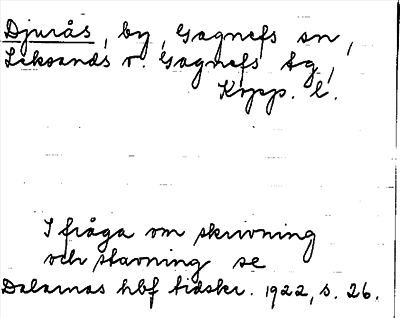 Djurås, by, Gagnefs sn,
Leksands o. Gagnefs tg,
Kopp. l.
I fråga om skrivning
och stavning se
Dalarnas hbf tidskr. 1922, s. 26.